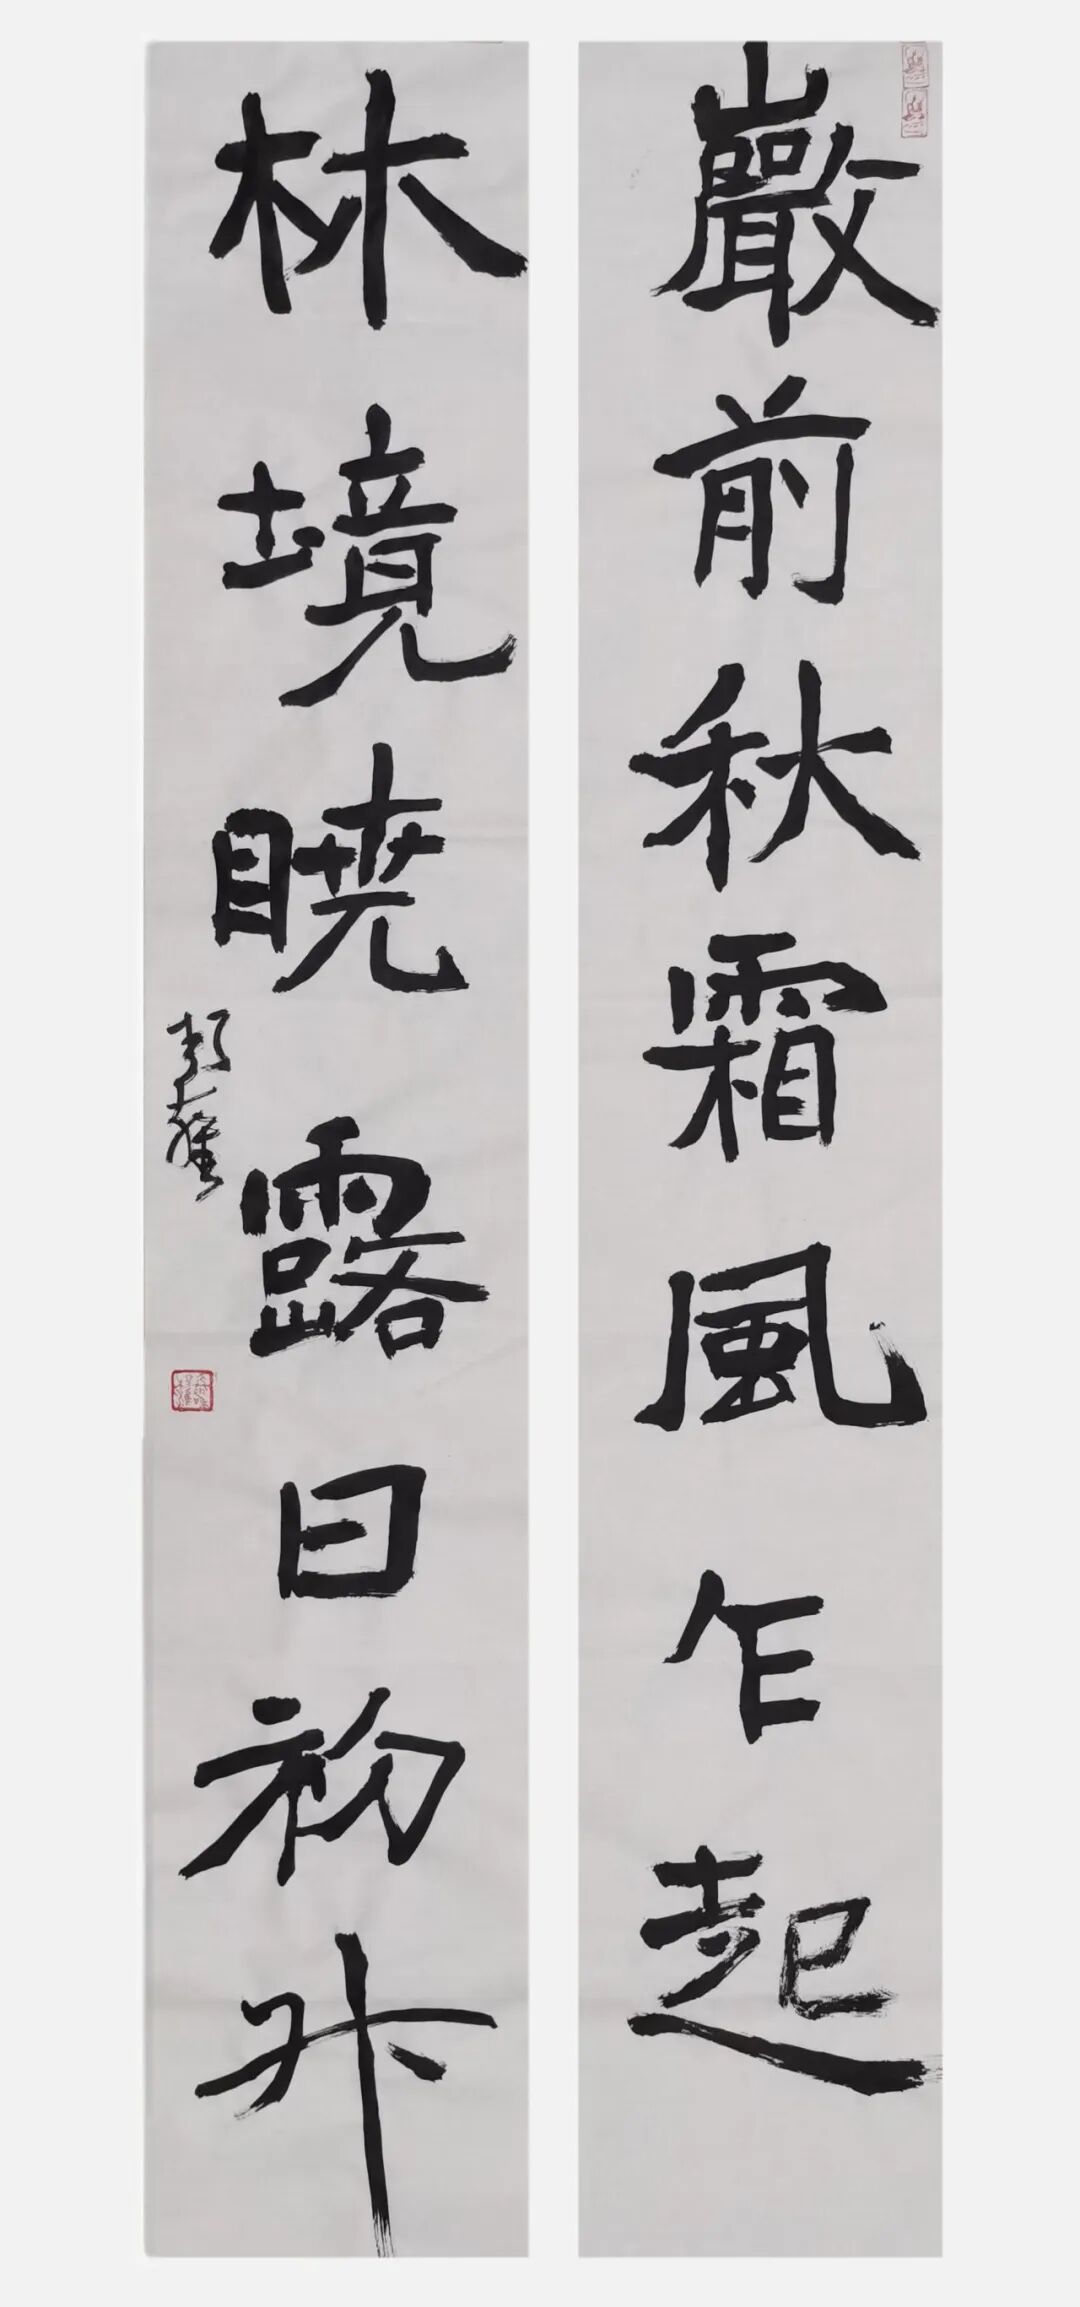 巖前秋霜風乍起
林境曉露日初升